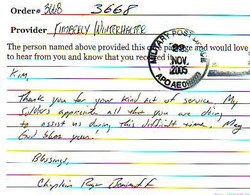 Order# 3668 3668
Provider Kimberly Winterhalter
The person named above provided this package and would love
to hear from you and know that you received it
MILITARY POST OFFICE
22
NOV.
2005
APO AE
Kim,
Thank you for your kind act of service. My
Soldiers appreciate all that you are doing
to assist us during this difficult time. May
God bless you!
Blessings,
Chaplain Roger